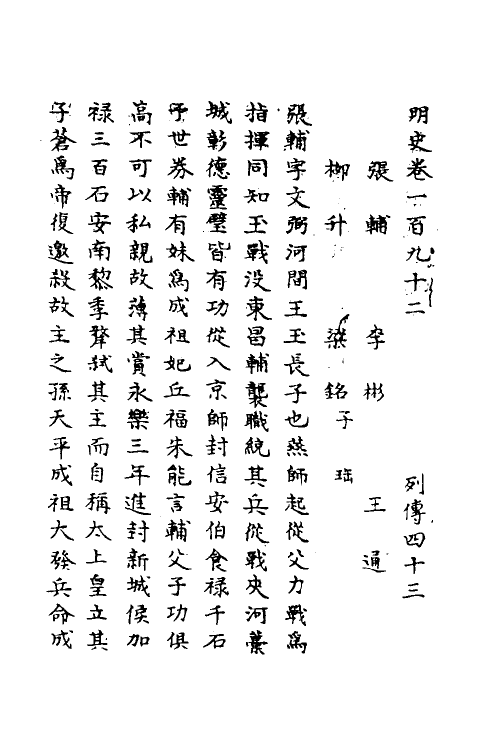 明史卷一百九十二　列傳四十三
張輔　李彬　王通
柳升　梁銘子珤
張輔字文弼河間王玉長子也燕師起從父力戰為
指揮同知玉戰沒東昌輔襲職統其兵從戰夾河藁
城彰德靈璧皆有功從入京師封信安伯食祿千石
予世券輔有妹為成祖妃丘福朱能言輔父子功俱
高不可以私親故薄其賞永樂三年進封新城侯加
祿三百石安南黎季犛弒其主而自稱太上皇立其
子蒼為帝復邀殺故主之孫天平成祖大發兵命成